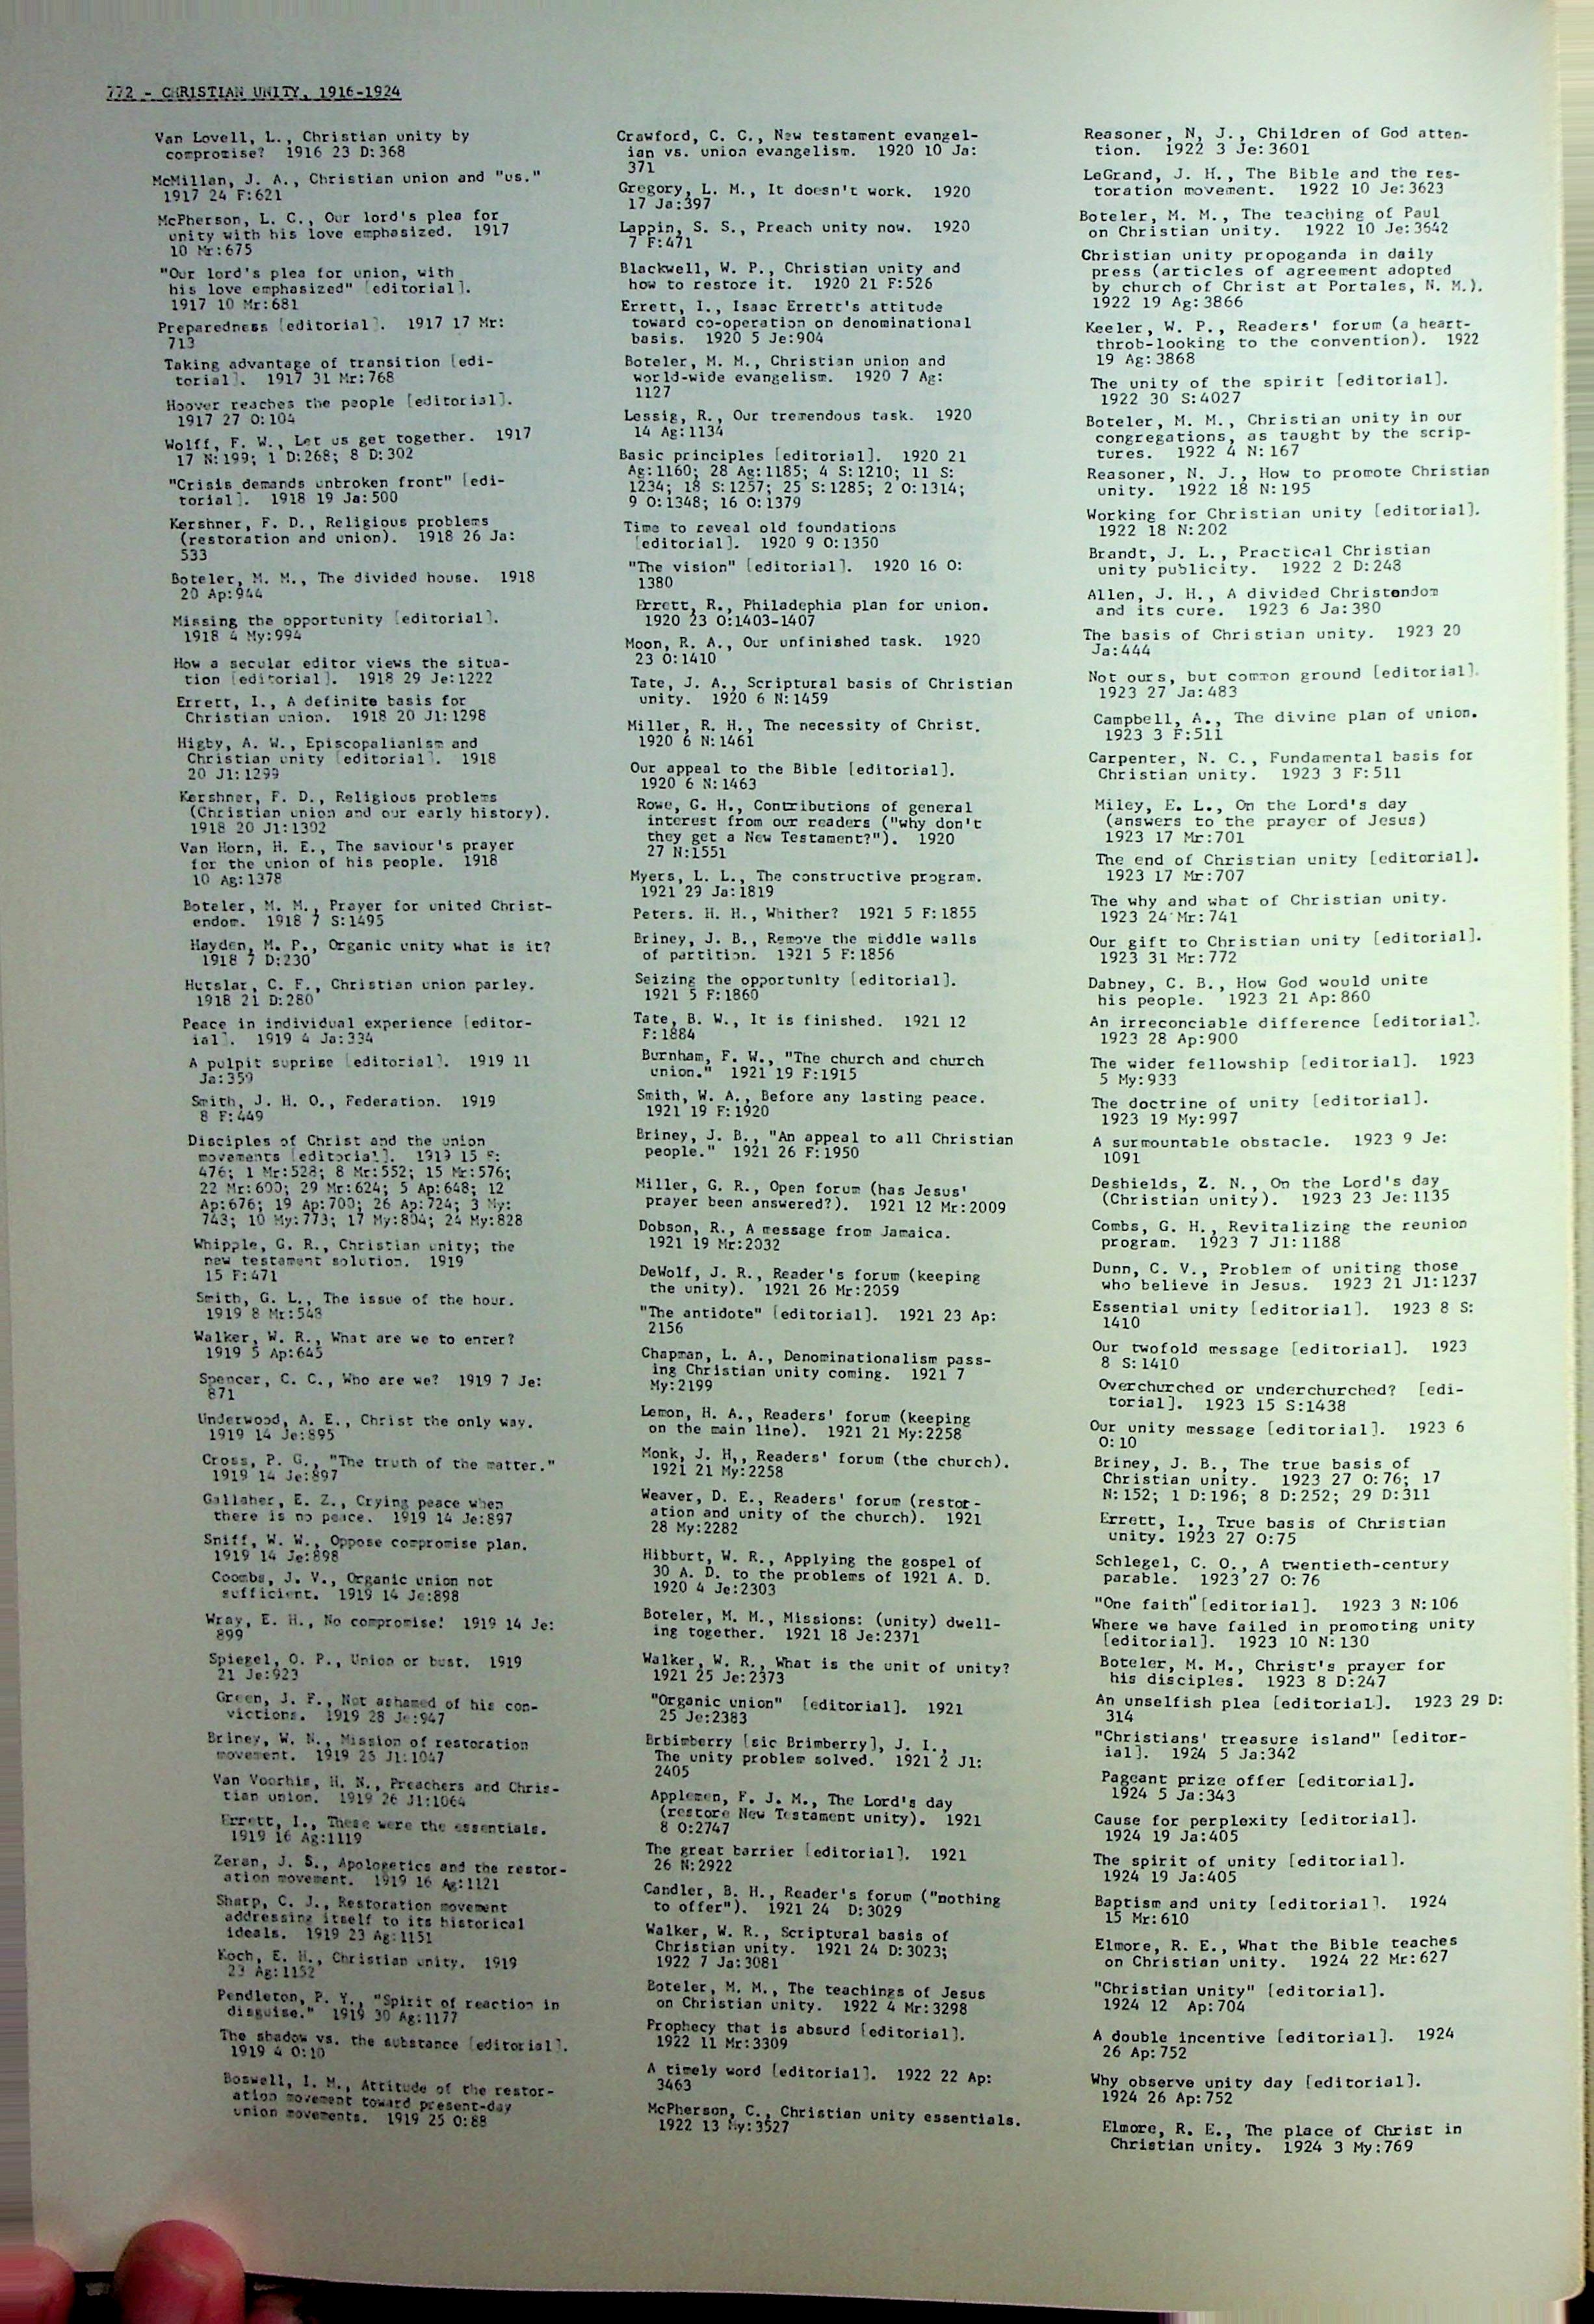 772 - CHRISTIAN UNITY, 1916-1924
Van Lovell, L., Christian unity by
compromise? 1916 23 D:368
McMillan, J. A., Christian union and "us."
1917 24 F:621
McPherson, L. C., Our lord's plea for
unity with his love emphasized. 1917
10 Mr:675
"Our lord's plea for union, with
his love emphasized" [editorial].
1917 10 Mr:681
Preparedness [editorial]. 1917 17 Mr:
713
Taking advantage of transition [edi-
torial]. 1917 31 Mr:768
Hoover reaches the people [editorial].
1917 27 O:104
Wolff, F. W., Let us get together. 1917
17 N:199; 1 D:268; 8 D:302
"Crisis demands unbroken front" [edi-
torial]. 1918 19 Ja:500
Kershner, F. D., Religious problems
(restoration and union). 1918 26 Ja:
533
Boteler, M. M., The divided house. 1918
20 Ap:944
Missing the opportunity [editorial].
1918 4 My:994
How a secular editor views the situa-
tion [editorial]. 1918 29 Je:1222
Errett, I., A definite basis for
Christian union. 1918 20 Jl:1298
Higby, A. W., Episcopalianism and
Christian unity [editorial]. 1918
20 Jl:1299
Kershner, F. D., Religious problems
(Christian union and our early history).
1918 20 Jl:1302
Van Horn, H. E., The saviour's prayer
for the union of his people. 1918
10 Ag:1378
Boteler, M. M., Prayer for united Christ-
endom. 1918 7 S:1495
Hayden, M. P., Organic unity what is it?
1918 7 D:230
Hutslar, C. F., Christian union parley.
1918 21 D:280
Peace in individual experience [editor-
ial]. 1919 4 Ja:334
A pulpit suprise [editorial]. 1919 11
Ja:359
Smith, J. H. O., Federation. 1919
8 F:449
Disciples of Christ and the union
movements [editorial]. 1919 15 F:
476; 1 Mr:528; 8 Mr:552; 15 Mr:576;
22 Mr:600; 29 Mr:624; 5 Ap:648; 12
Ap:676; 19 Ap:700; 26 Ap:724; 3 My:
743; 10 My:773; 17 My:804; 24 My:828
Whipple, G. R., Christian unity; the
new testament solution. 1919
15 F:471
Smith, G. L., The issue of the hour.
1919 8 Mr:543
Walker, W. R., What are we to enter?
1919 5 Ap:645
Spencer, C. C., Who are we? 1919 7 Je:
871
Underwood, A. E., Christ the only way.
1919 14 Je:895
Cross, P. G., "The truth of the matter."
1919 14 Je:897
Gallaher, E. Z., Crying peace when
there is no peace. 1919 14 Je:897
Sniff, W. W., Oppose compromise plan.
1919 14 Je:898
Coombs, J. V., Organic union not
sufficient. 1919 14 Je:898
Wray, E. H., No compromise! 1919 14 Je:
899
Spiegel, O. P., Union or bust. 1919
21 Je:923
Green, J. F., Not ashamed of his con-
victions. 1919 28 Je:947
Briney, W. N., Mission of restoration
movement. 1919 26 Jl:1047
Van Voorhis, H. N., Preachers and Chris-
tian union. 1919 26 Jl:1064
Errett, I., These were the essentials.
1919 16 Ag:1119
Zeran, J. S., Apologetics and the restor-
ation movement. 1919 16 Ag:1121
Sharp, C. J., Restoration movement
addressing itself to its historical
ideals. 1919 23 Ag:1151
Koch, E. H., Christian unity. 1919
23 Ag:1152
Pendleton, P. Y., "Spirit of reaction in
disguise." 1919 30 Ag:1177
The shadow vs. the substance [editorial].
1919 4 O:10
Boswell, I. M., Attitude of the restor-
ation movement toward present-day
union movements. 1919 25 O:88
Crawford, C. C., New testament evangel-
ian vs. union evangelism. 1920 10 Ja:
371
Gregory, L. M., It doesn't work. 1920
17 Ja:397
Lappin, S. S., Preach unity now. 1920
7 F:471
Blackwell, W. P., Christian unity and
how to restore it. 1920 21 F:526
Errett, I., Isaac Errett's attitude
toward co-operation on denominational
basis. 1920 5 Je:904
Boteler, M. M., Christian union and
world-wide evangelism. 1920 7 Ag:
1127
Lessig, R., Our tremendous task. 1920
14 Ag:1134
Basic principles [editorial]. 1920 21
Ag:1160; 28 Ag:1185; 4 S:1210; 11 S:
1234; 18 S:1257; 25 S:1285; 2 O:1314;
9 O:1348; 16 O:1379
Time to reveal old foundations
[editorial]. 1920 9 O:1350
"The vision" [editorial]. 1920 16 O:
1380
Errett, R., Philadephia plan for union.
1920 23 O:1403-1407
Moon, R. A., Our unfinished task. 1920
23 O:1410
Tate, J. A., Scriptural basis of Christian
unity. 1920 6 N:1459
Miller, R. H., The necessity of Christ.
1920 6 N:1461
Our appeal to the Bible [editorial].
1920 6 N:1463
Rowe, G. H., Contributions of general
interest from our readers ("why don't
they get a New Testament?"). 1920
27 N:1551
Myers, L. L., The constructive program.
1921 29 Ja:1819
Peters. H. H., Whither? 1921 5 F:1855
Briney, J. B., Remove the middle walls
of partition. 1921 5 F:1856
Seizing the opportunity [editorial].
1921 5 F:1860
Tate, B. W., It is finished. 1921 12
F:1884
Burnham, F. W., "The church and church
union." 1921 19 F:1915
Smith, W. A., Before any lasting peace.
1921 19 F:1920
Briney, J. B., "An appeal to all Christian
people." 1921 26 F:1950
Miller, G. R., Open forum (has Jesus'
prayer been answered?). 1921 12 Mr:2009
Dobson, R., A message from Jamaica.
1921 19 Mr:2032
DeWolf, J. R., Reader's forum (keeping
the unity). 1921 26 Mr:2059
"The antidote" [editorial]. 1921 23 Ap:
2156
Chapman, L. A., Denominationalism pass-
ing Christian unity coming. 1921 7
My:2199
Lemon, H. A., Readers' forum (keeping
on the main line). 1921 21 My:2258
Monk, J. H,, Readers' forum (the church).
1921 21 My:2258
Weaver, D. E., Readers' forum (restor-
ation and unity of the church). 1921
28 My:2282
Hibburt, W. R., Applying the gospel of
30 A. D. to the problems of 1921 A. D.
1920 4 Je:2303
Boteler, M. M., Missions: (unity) dwell-
ing together. 1921 18 Je:2371
Walker, W. R., What is the unit of unity?
1921 25 Je:2373
"Organic union" [editorial]. 1921
25 Je:2383
Brbimberry [sic Brimberry], J. I.,
The unity problem solved. 1921 2 Jl:
2405
Applemen, F. J. M., The Lord's day
(restore New Testament unity). 1921
8 O:2747
The great barrier [editorial]. 1921
26 N:2922
Candler, B. H., Reader's forum ("nothing
to offer"). 1921 24 D:3029
Walker, W. R., Scriptural basis of
Christian unity. 1921 24 D:3023;
1922 7 Ja:3081
Boteler, M. M., The teachings of Jesus
on Christian unity. 1922 4 Mr:3298
Prophecy that is absurd [editorial].
1922 11 Mr:3309
A timely word [editorial]. 1922 22 Ap:
3463
McPherson, C., Christian unity essentials.
1922 13 My:3527
Reasoner, N, J., Children of God atten-
tion. 1922 3 Je:3601
LeGrand, J. H., The Bible and the res-
toration movement. 1922 10 Je:3623
Boteler, M. M., The teaching of Paul
on Christian unity. 1922 10 Je:3642
Christian unity propoganda in daily
press (articles of agreement adopted
by church of Christ at Portales, N. M.).
1922 19 Ag:3866
Keeler, W. P., Readers' forum (a heart-
throb-looking to the convention). 1922
19 Ag:3868
The unity of the spirit [editorial].
1922 30 S:4027
Boteler, M. M., Christian unity in our
congregations, as taught by the scrip-
tures. 1922 4 N:167
Reasoner, N. J., How to promote Christian
unity. 1922 18 N:195
Working for Christian unity [editorial].
1922 18 N:202
Brandt, J. L., Practical Christian
unity publicity. 1922 2 D:248
Allen, J. H., A divided Christendom
and its cure. 1923 6 Ja:380
The basis of Christian unity. 1923 20
Ja:444
Not ours, but common ground [editorial].
1923 27 Ja:483
Campbell, A., The divine plan of union.
1923 3 F:511
Carpenter, N. C., Fundamental basis for
Christian unity. 1923 3 F:511
Miley, E. L., On the Lord's day
(answers to the prayer of Jesus)
1923 17 Mr:701
The end of Christian unity [editorial].
1923 17 Mr:707
The why and what of Christian unity.
1923 24 Mr:741
Our gift to Christian unity [editorial].
1923 31 Mr:772
Dabney, C. B., How God would unite
his people. 1923 21 Ap:860
An irreconciable difference [editorial].
1923 28 Ap:900
The wider fellowship [editorial]. 1923
5 My:933
The doctrine of unity [editorial].
1923 19 My:997
A surmountable obstacle. 1923 9 Je:
1091
Deshields, Z. N., On the Lord's day
(Christian unity). 1923 23 Je:1135
Combs, G. H., Revitalizing the reunion
program. 1923 7 Jl:1188
Dunn, C. V., Problem of uniting those
who believe in Jesus. 1923 21 Jl:1237
Essential unity [editorial]. 1923 8 S:
1410
Our twofold message [editorial]. 1923
8 S:1410
Overchurched or underchurched? [edi-
torial]. 1923 15 S:1438
Our unity message [editorial]. 1923 6
O:10
Briney, J. B., The true basis of
Christian unity. 1923 27 O:76; 17
N:152; 1 D:196; 8 D:252; 29 D:311
Errett, I., True basis of Christian
unity. 1923 27 O:75
Schlegel, C. O., A twentieth-century
parable. 1923 27 O:76
"One faith" [editorial]. 1923 3 N:106
Where we have failed in promoting unity
[editorial]. 1923 10 N:130
Boteler, M. M., Christ's prayer for
his disciples. 1923 8 D:247
An unselfish plea [editorial]. 1923 29 D:
314
"Christians' treasure island" [editor-
ial]. 1924 5 Ja:342
Pageant prize offer [editorial].
1924 5 Ja:343
Cause for perplexity [editorial].
1924 19 Ja:405
The spirit of unity [editorial].
1924 19 Ja:405
Baptism and unity [editorial]. 1924
15 Mr:610
Elmore, R. E., What the Bible teaches
on Christian unity. 1924 22 Mr:627
"Christian unity" [editorial].
1924 12 Ap:704
A double incentive [editorial]. 1924
26 Ap:752
Why observe unity day [editorial].
1924 26 Ap:752
Elmore, R. E., The place of Christ in
Christian unity. 1924 3 My:769